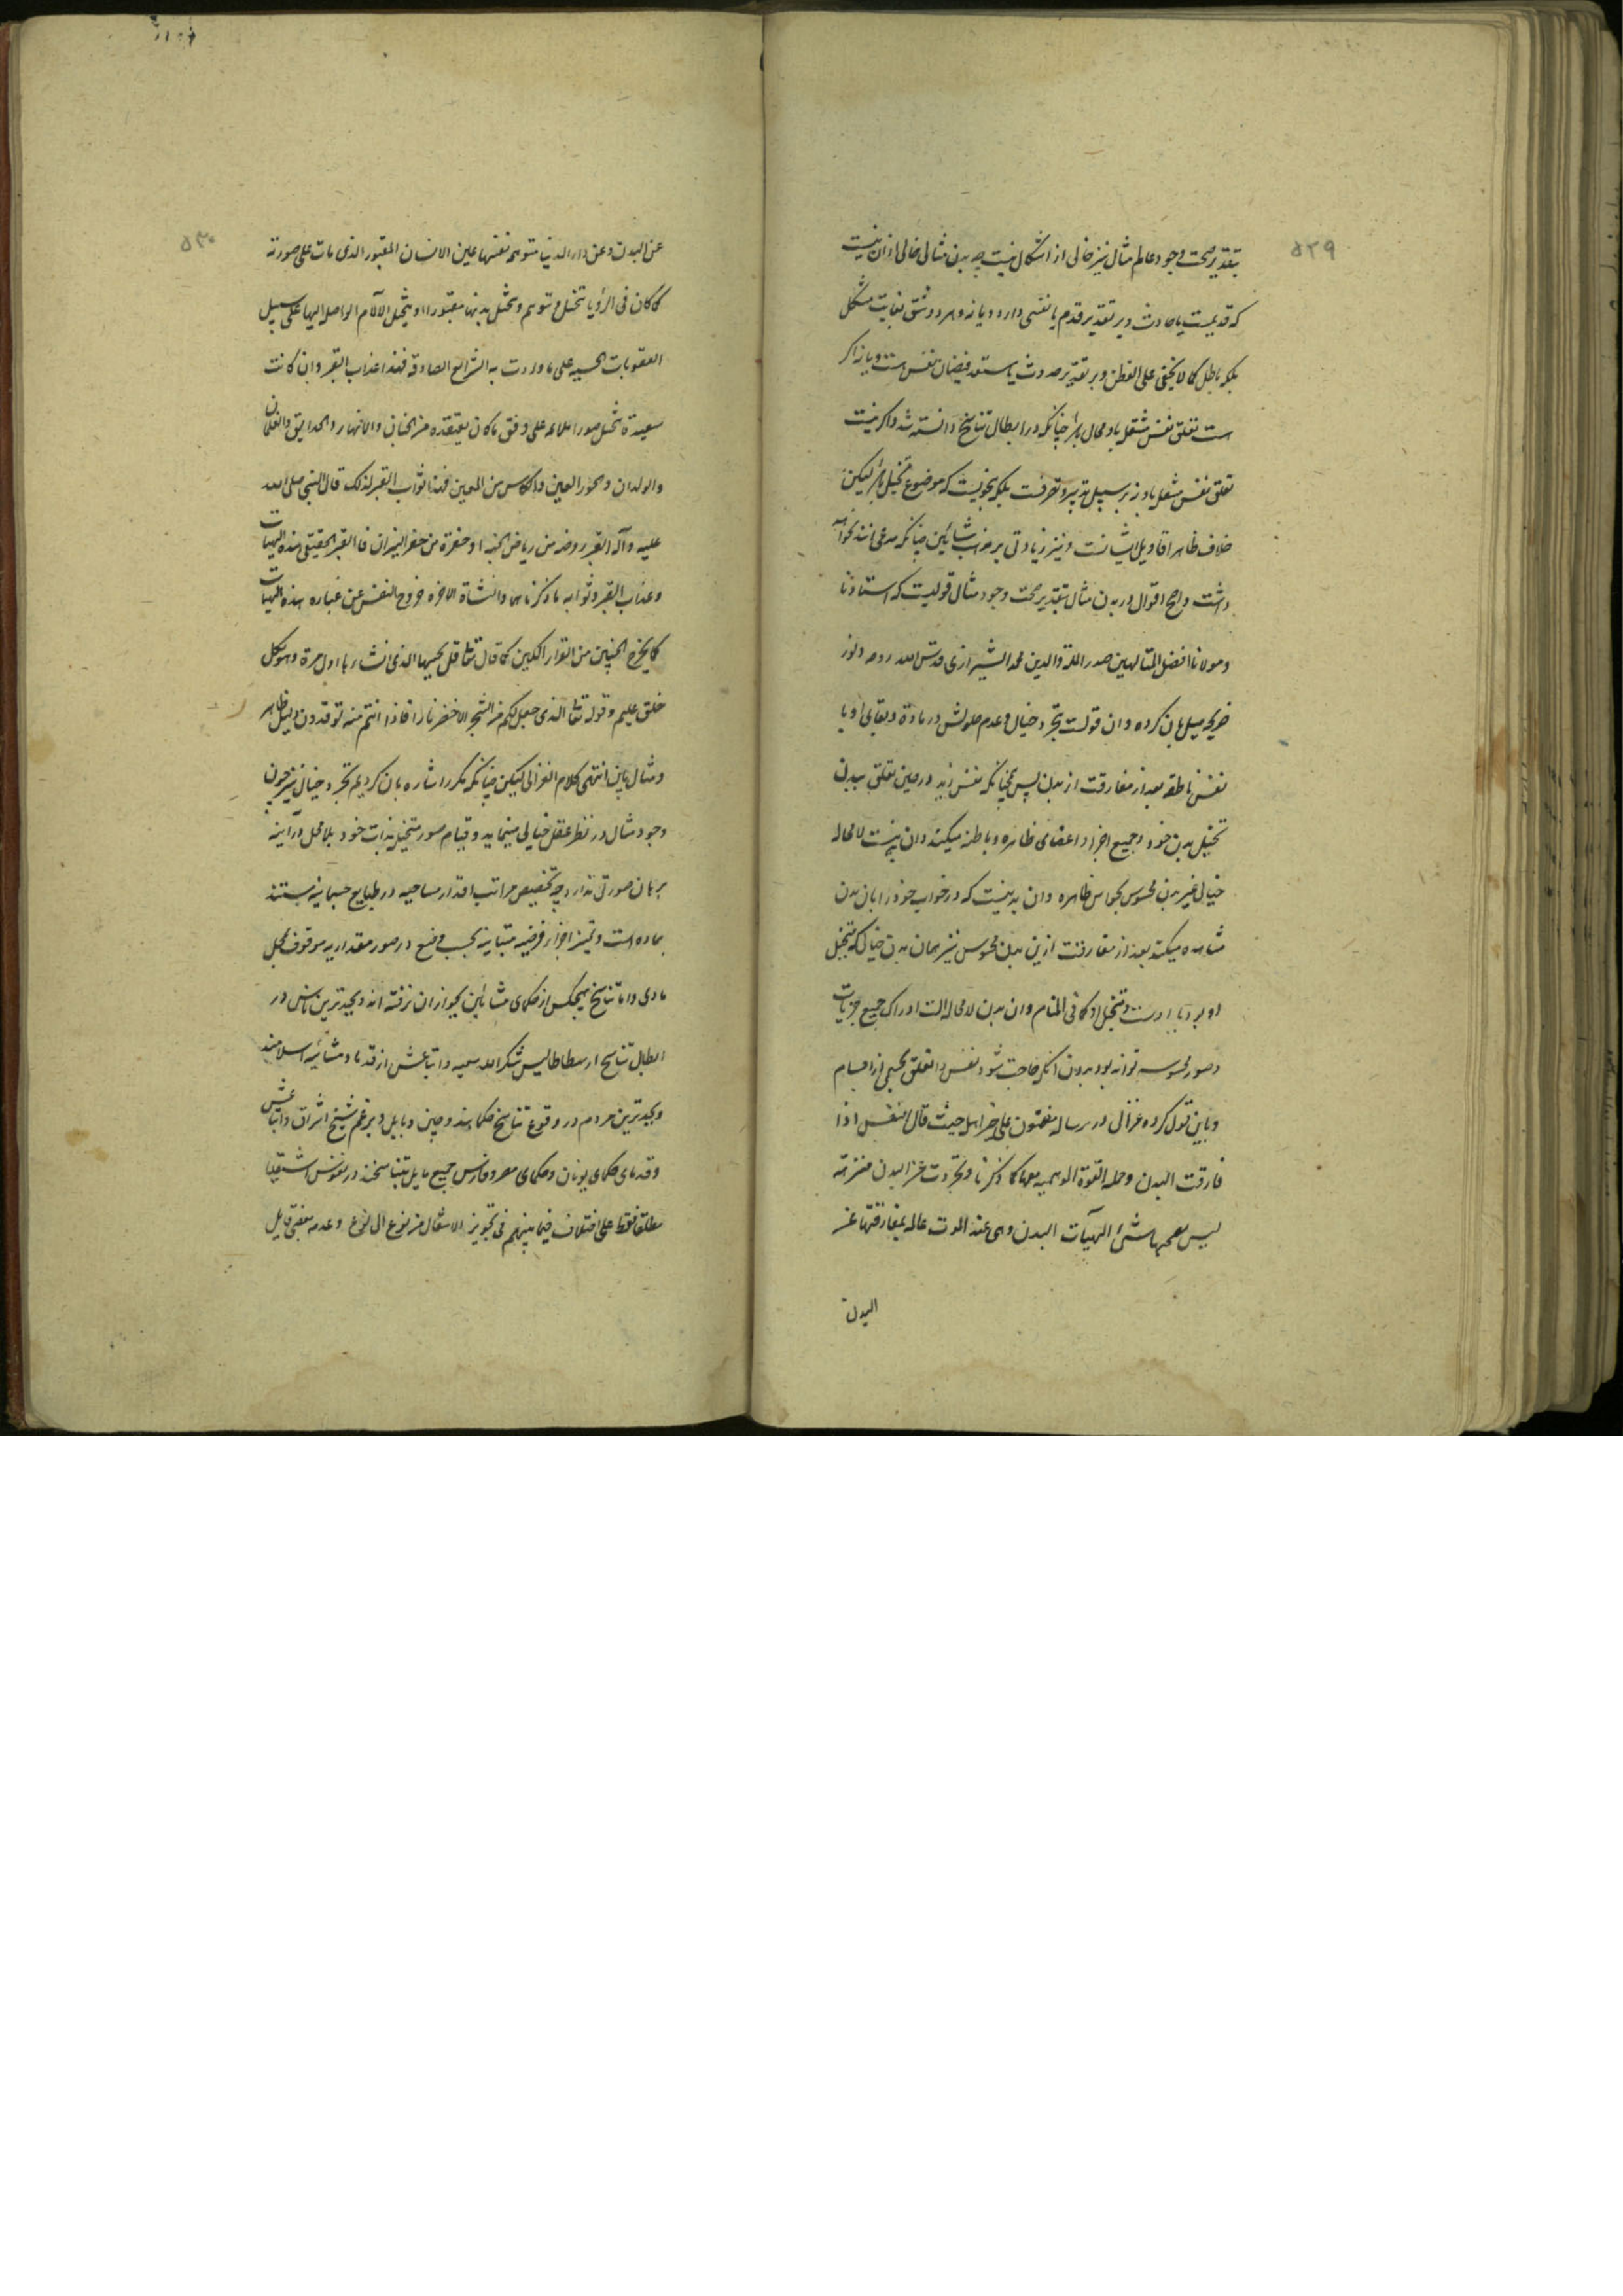 ۵۲۹
بتقدیر صحت وجود عالم مثال نیز خالی از اشکال نیست چه بدن مثالی خالی از ان نیست
که قدیمست یا حادث و بر تقدیر قدم یا نفسی دارد و یا نه و هر دو شق بغایت مشکل
بلکه باطل کما لا یخفی علی الفطن و بر تقدیر حدوث یا مستعد فیضان نفس است و یا نه اکر
است تعلق نفس منتقل باو محال باشد چنانکه در ابطال تناسخ دانسته شد و اکر نیست
تعلق نفس منتقل باو نه بر سبیل تدبیر و تصرفست بلکه بنحویست که موضوع تخیل باشد لیکن
خلاف ظاهر اقاویل ایشانست و نیز زیادتی بر مذهب مشائین چنانکه مدعی‌اند نخواهد
داشت و اصح اقوال در بدن مثال بتقدیر صحت وجود مثال قولیست که استادنا
و مولانا افضل المتالهین صدر الملة والدین محمد الشیرازی قدس الله روحه و نور
ضریحه میل بان کرده و ان قولست بتجرد خیال و عدم حلولش در مادة و بقای او با
نفس ناطقه بعد از مفارقت از بدن پس همچنانکه نفس زید در حین تعلق ببدن
تخیل بدن خود و جمیع اجزا و اعضای ظاهره و باطنه میکند و ان بدنیست لا محاله
خیالی غیر بدن محسوس بحواس ظاهره و ان بدنیست که در خواب خود را بان بدن
مشاهده میکند بعد از مفارقت ازین بدن محسوس نیز همان بدن خیالی که متخیل
او بود با اوست و متخیل او کما فی المنام و ان بدن لا محاله الت ادراک جمیع جزئیات
و صور محسوسه تواند بود بدون انکه حاجت شود نفس را تعلق بجسمی از اجسام
و باین قول کرده غزالی در رساله مضنون علی غیر اهله حیث قال النفس اذا
فارقت البدن و حمله القوة الوهمیه معها کما ذکرنا و تجردت عن البدن منزهة
لیس یصحبها شیء الهیآت البدن و هی عند الموت عالمه بمفارقتها عن
البدن
۵۳۰
عن البدن و عن دار الدنیا متوهمه نفسها عین الانسان المقبور الذی مات علی صورته
کما کان فی الرؤیا تتخیل و تتوهم و تتخیل بدنها مقبورا و یتخیل الآلام الواصله الیها علی سبیل
العقوبات الحسیه علی ما وردت به الشرائع الصادقه فهذا عذاب القبر و ان کانت
سعیدة تتخیل صورا ملائمه علی وفق ما کان یعتقده من الجنان والانهار والحدایق والغلمان
والولدان والحور العین والکاس من المعین فهذا ثواب القبر لذلک قال النبی صلی الله
علیه وآله القبر روضه من ریاض الجنه او حفرة من حفر النیران فالقبر الحقیقی هذه الهیات
و عذاب القبر و ثوابه ما ذکرناهما والنشاة الاخره خروج النفس عن غباره هذه الهیات
کما یخرج الجنین من القرار المکین کما قال تعا قل یحییها الذی انشاءها اول مرة و هو بکل
خلق علیم و قوله تعا الذی جعل لکم من الشجر الاخضر نارا فاذا انتم منه توقدون دلیل ظاهر
و مثال باین انتهی کلام الغزالی لیکن چنانکه مکرر اشاره بان کردیم تجرد خیال نیز چون
وجود مثال در نظر عقل خیالی مینماید و قیام صور متخیله بذات خود بلا محل در آینه
برهان صورتی ندارد چه تخصیص مراتب اقدار مساحیه در طبایع جسمانیه مستند
بماده است و تمیز اجزاء فرضیه متباینه بحسب وضع در صور مقداریه موقوف بمحل
مادی و اما تناسخ هیچکس از حکمای مشائین بجواز ان نرفته اند و بجدترین ناس در
ابطال تناسخ ارسطاطالیس شکر الله سعیه و اتباعش از قدماء و مشائیه اسلامند
و بجدترین مردم در وقوع تناسخ حکماء هند و چین و بابل و بر زعم شیخ اشراق و اتباعش
و قدمای حکمای یونان و حکمای مصر و فارس جمیع مایل بتناسخند در نفوس اشقیا
مطلقا فقط علی اختلاف فیما بینهم فی تجویز الانتقال من نوع الی نوع و عدمه بعضی قایل